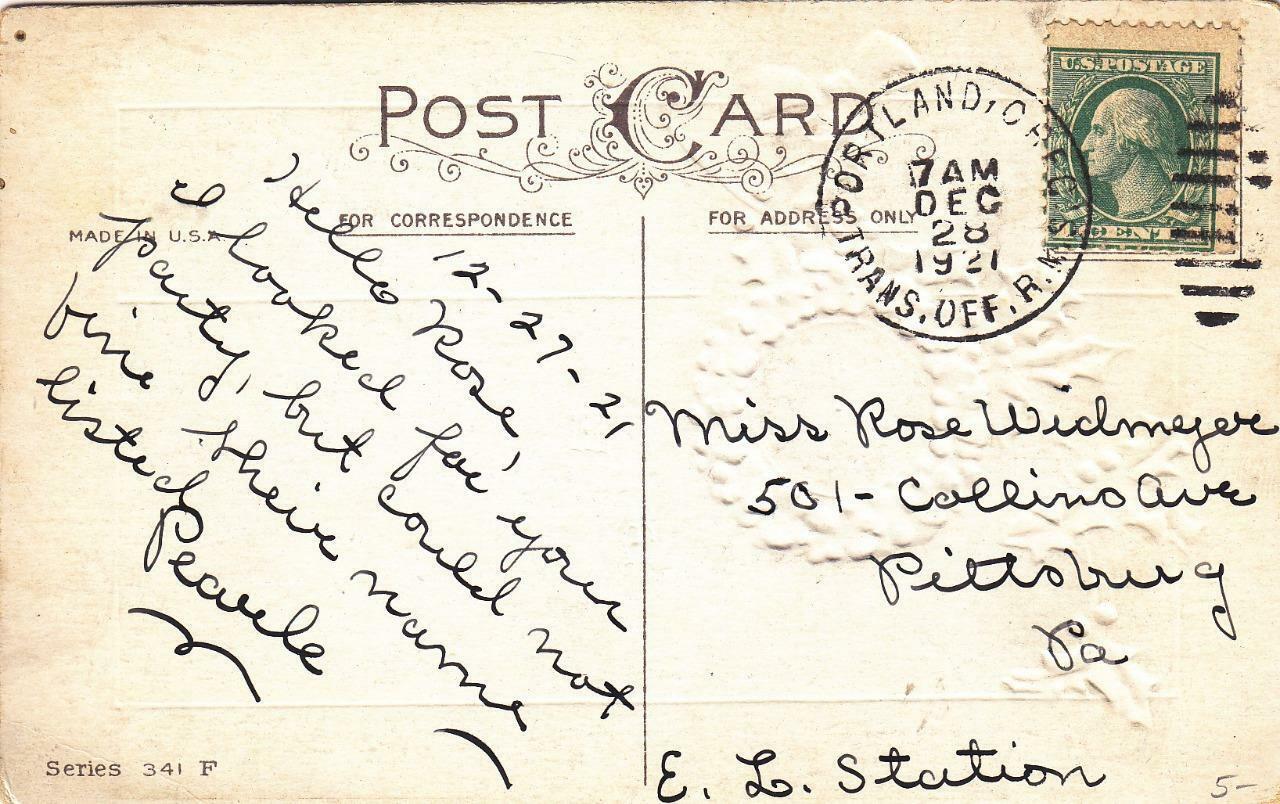 POST CARD
FOR CORRESPONDENCE
FOR ADDRESS ONLY
MADE IN U.S.A.
PORTLAND, OREG.
TRANS. OFF. R.M.S.
7 AM
DEC
28
1921
U.S. POSTAGE
1 CENT 1
12-27-21
Hello Rose,
I looked for your
party, but could not
fine their name
listed
Pearle
Miss Rose Widmeyer
501- Collins Ave
Pittsburg
Pa
E. L. Station
Series 341 F
5-